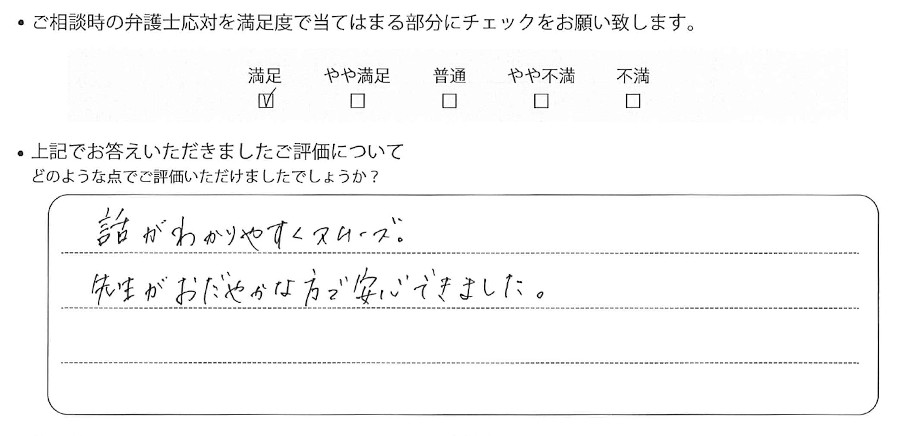 ・ご相談時の弁護士応対を満足度で当てはまる部分にチェックをお願い致します。
満足 やや満足 普通 やや不満 不満
☑ □ □ □ □
・上記でお答えいただきましたご評価について
どのような点でご評価いただけましたでしょうか？
話がわかりやすくスムーズ。
先生がおだやかな方で安心できました。